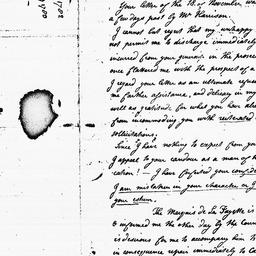 Your letter of the 18 of November was
a few days past by Mr Harrison.
I cannot but regret that my unhappy
not permit me to discharge immediately
incurred from your generosity in the prosecu
once flattered me with the prospect of a
I regard your letter as an ultimate
me further assistance, and delicacy in my
well as gratitude for what you have alre
from incommoding you with reiterated
sollicitations;
Since I have nothing to expect from you
I appeal to your candour as a man of
cation! – I have forfeited your confide
I am mistaken in your character if I
your esteem.
The Marquis de La Fayette is
& informed me the other day by the Coun
is desirous for me to accompany him to
in consequence repair immediately to Ca